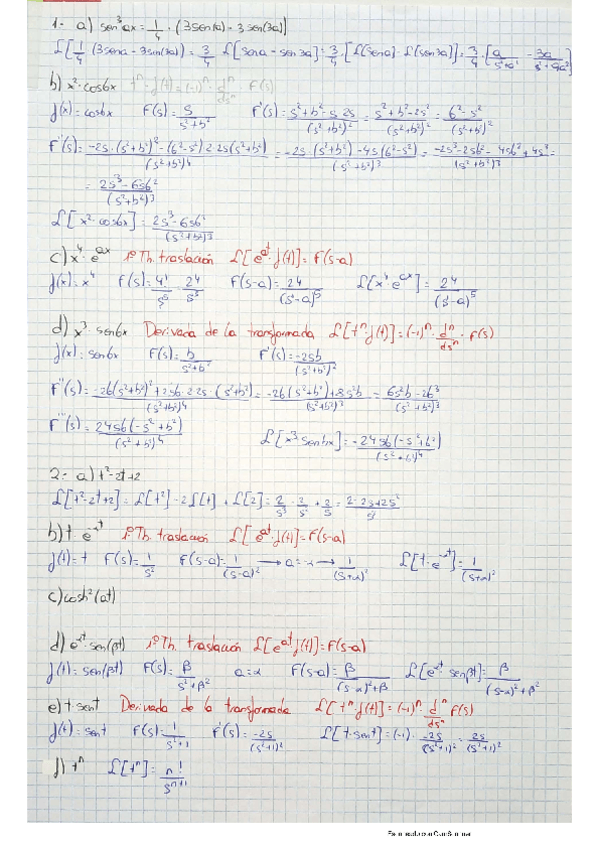 1- a) sen³ax = 1/4 · (3sen(a) - 3sen(3a)]
L[1/4 (3sena - 3sin(3a)] = 3/4 · L[sena - sen3a] = 3/4 · [L[sena] - L[sen3a]] = 3/4 · [a/s²+a² - 3a/s²+9a²]
b) x²·cos6x tⁿ·f(t) = (-1)ⁿ · dⁿ/dsⁿ · F(s)
f(x) = cos6x F(s) = s/s²+b² F'(s) = s²+b²-s·2s/(s²+b²)² = s²+b²-2s²/(s²+b²)² = 6²-s²/(s²+b²)²
F''(s) = -2s·(s²+b²)²-(6²-s²)·2·2s(s²+b²)/(s²+b²)⁴ = -2s·(s²+b²)-4s(6²-s²)/(s²+b²)³ = -2s³-2sb²-4s6²+4s³/(s²+b²)³ =
= 2s³-6s6²/(s²+b²)³
L[x²·cos6x] = 2s³-6s6²/(s²+b²)³
c) x⁴·eᵃˣ 1º Th. traslación L[eᵃᵗ·f(t)] = F(s-a)
f(x) = x⁴ F(s) = 4!/s⁵ = 24/s⁵ F(s-a) = 24/(s-a)⁵ L[x⁴·eᵃˣ] = 24/(s-a)⁵
d) x³·sen6x Derivada de la transformada L[tⁿ·f(t)] = (-1)ⁿ · dⁿ/dsⁿ · F(s)
f(x) = sen6x F(s) = b/s²+b² F'(s) = -2sb/(s²+b²)²
F''(s) = -2b(s²+b²)²+2sb·2·2s·(s²+b²)/(s²+b²)⁴ = -2b(s²+b²)+8s²b/(s²+b²)³ = 6s²b-2b³/(s²+b²)³
F'''(s) = 24sb(-s²+b²)/(s²+b²)⁴ L[x³ sen6x] = -24sb(-s²+b²)/(s²+b²)⁴
2- a) t²-2t+2
L[t²-2t+2] = L[t²]-2L[t]+L[2] = 2/s³ - 2/s² + 2/s = 2-2s+2s²/s³
b) t·e^-αt 1º Th. traslación L[eᵃᵗ·f(t)] = F(s-a)
f(t) = t F(s) = 1/s² F(s-a) = 1/(s-a)² → a=-α → 1/(s+α)² L[t·e^-αt] = 1/(s+α)²
c) cosh²(at)
d) e^-αt·sen(βt) 1º Th. traslación L[eᵃᵗ·f(t)] = F(s-a)
f(t) = sen(βt) F(s) = β/s²+β² a=α F(s-a) = β/(s-α)²+β L[e^-αt senβt] = β/(s-α)²+β²
e) t·sent Derivada de la transformada L[tⁿ·f(t)] = (-1)ⁿ · dⁿ/dsⁿ F(s)
f(t) = sent F(s) = 1/s²+1 F'(s) = -2s/(s²+1)² L[t·sent] = (-1)·-2s/(s²+1)² = 2s/(s²+1)²
f) tⁿ L[tⁿ] = n!/sⁿ⁺¹